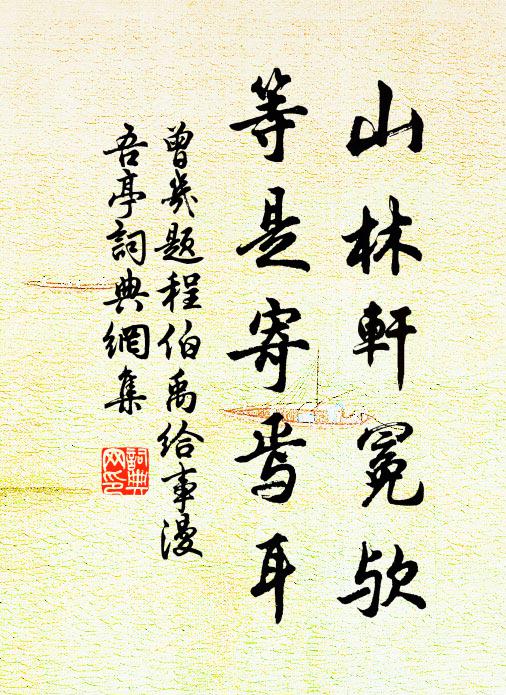 山林軒冕欤
等是寄焉耳
曾幾題程伯禹給事漫
吾亭詞典網集
詞典
网印